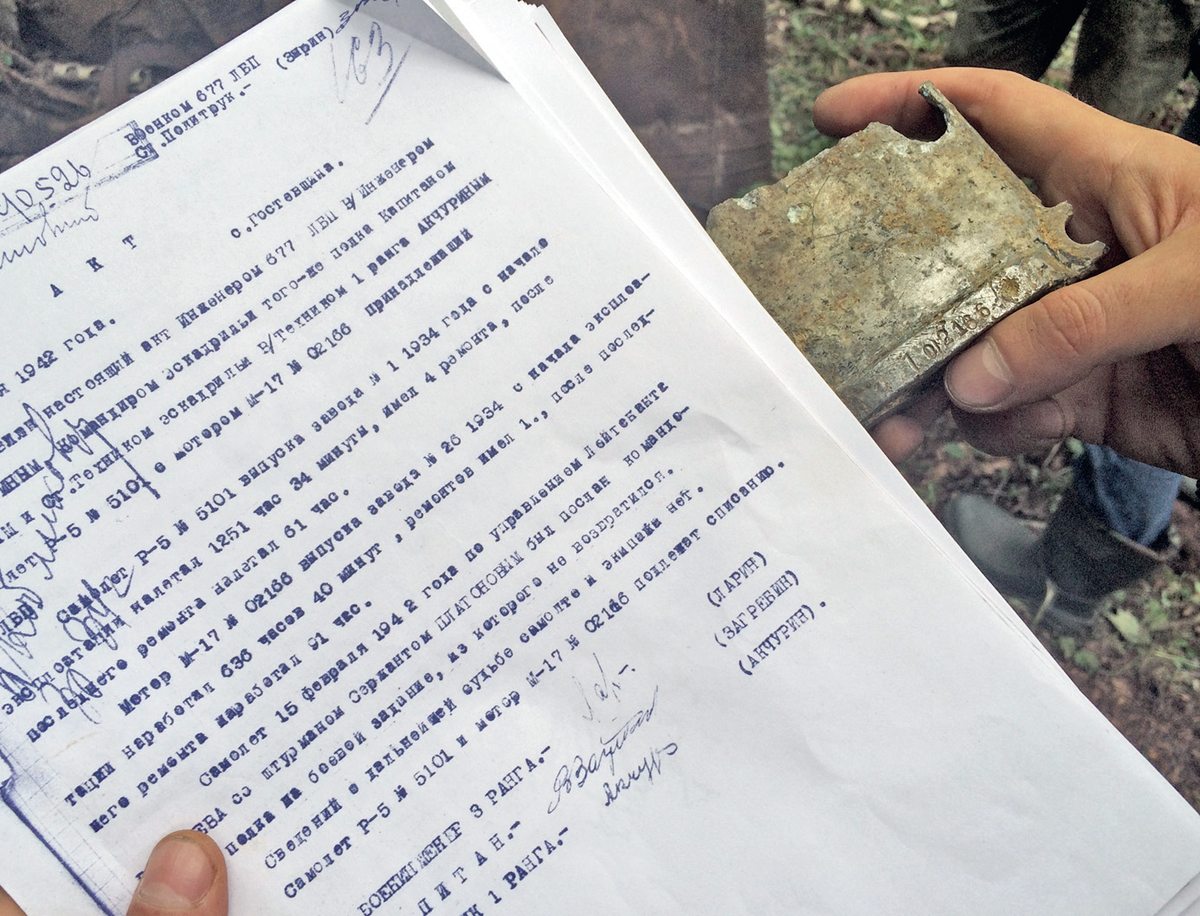 Военком 677 ЛБП
Ст.Политрук.- (Зирин)
163
40526
А К Т
с.Гостевщина.
1942 года.
настоящий акт Инженером 677 ЛБП В/Инженером
командиром эскадрильи того-же полка Капитаном
и ст.Техником эскадрильи В/Техником 1 ранга АКЧУРИНЫМ
5 № 5101 с мотором М-17 № 02166 принадлежащий
ЛБП
Самолет Р-5 № 5101 выпуска завода № 1 1934 года с начала
эксплоатации налетал 1251 час 34 минуты, имел 4 ремонта, после
последнего ремонта налетал 61 час.
Мотор М-17 № 02166 выпуска завода № 26 1934 с начала эксплоа-
тации наработал 636 часов 40 минут , ремонтов имел 1., после послед-
него ремонта наработал 91 час.
Самолет 15 февраля 1942 года по управлением Лейтенанта
ЕВА со штурманом Сержантом ПЛАТОНОВЫМ был послан командо-
полка на боевой задание, из которого не возвратился.
Сведений о дальнейшей судьбе самолте и экипажи нет.
Самолет Р-5 № 5101 и мотор М-17 № 02166 подлежат списанию.
ВОЕНИНЖЕНЕР 3 РАНГА.- (ЛАРИН)
П И Т А Н.- (ЗАГРЕБИН)
1 РАНГА.- (АКЧУРИН).
102166